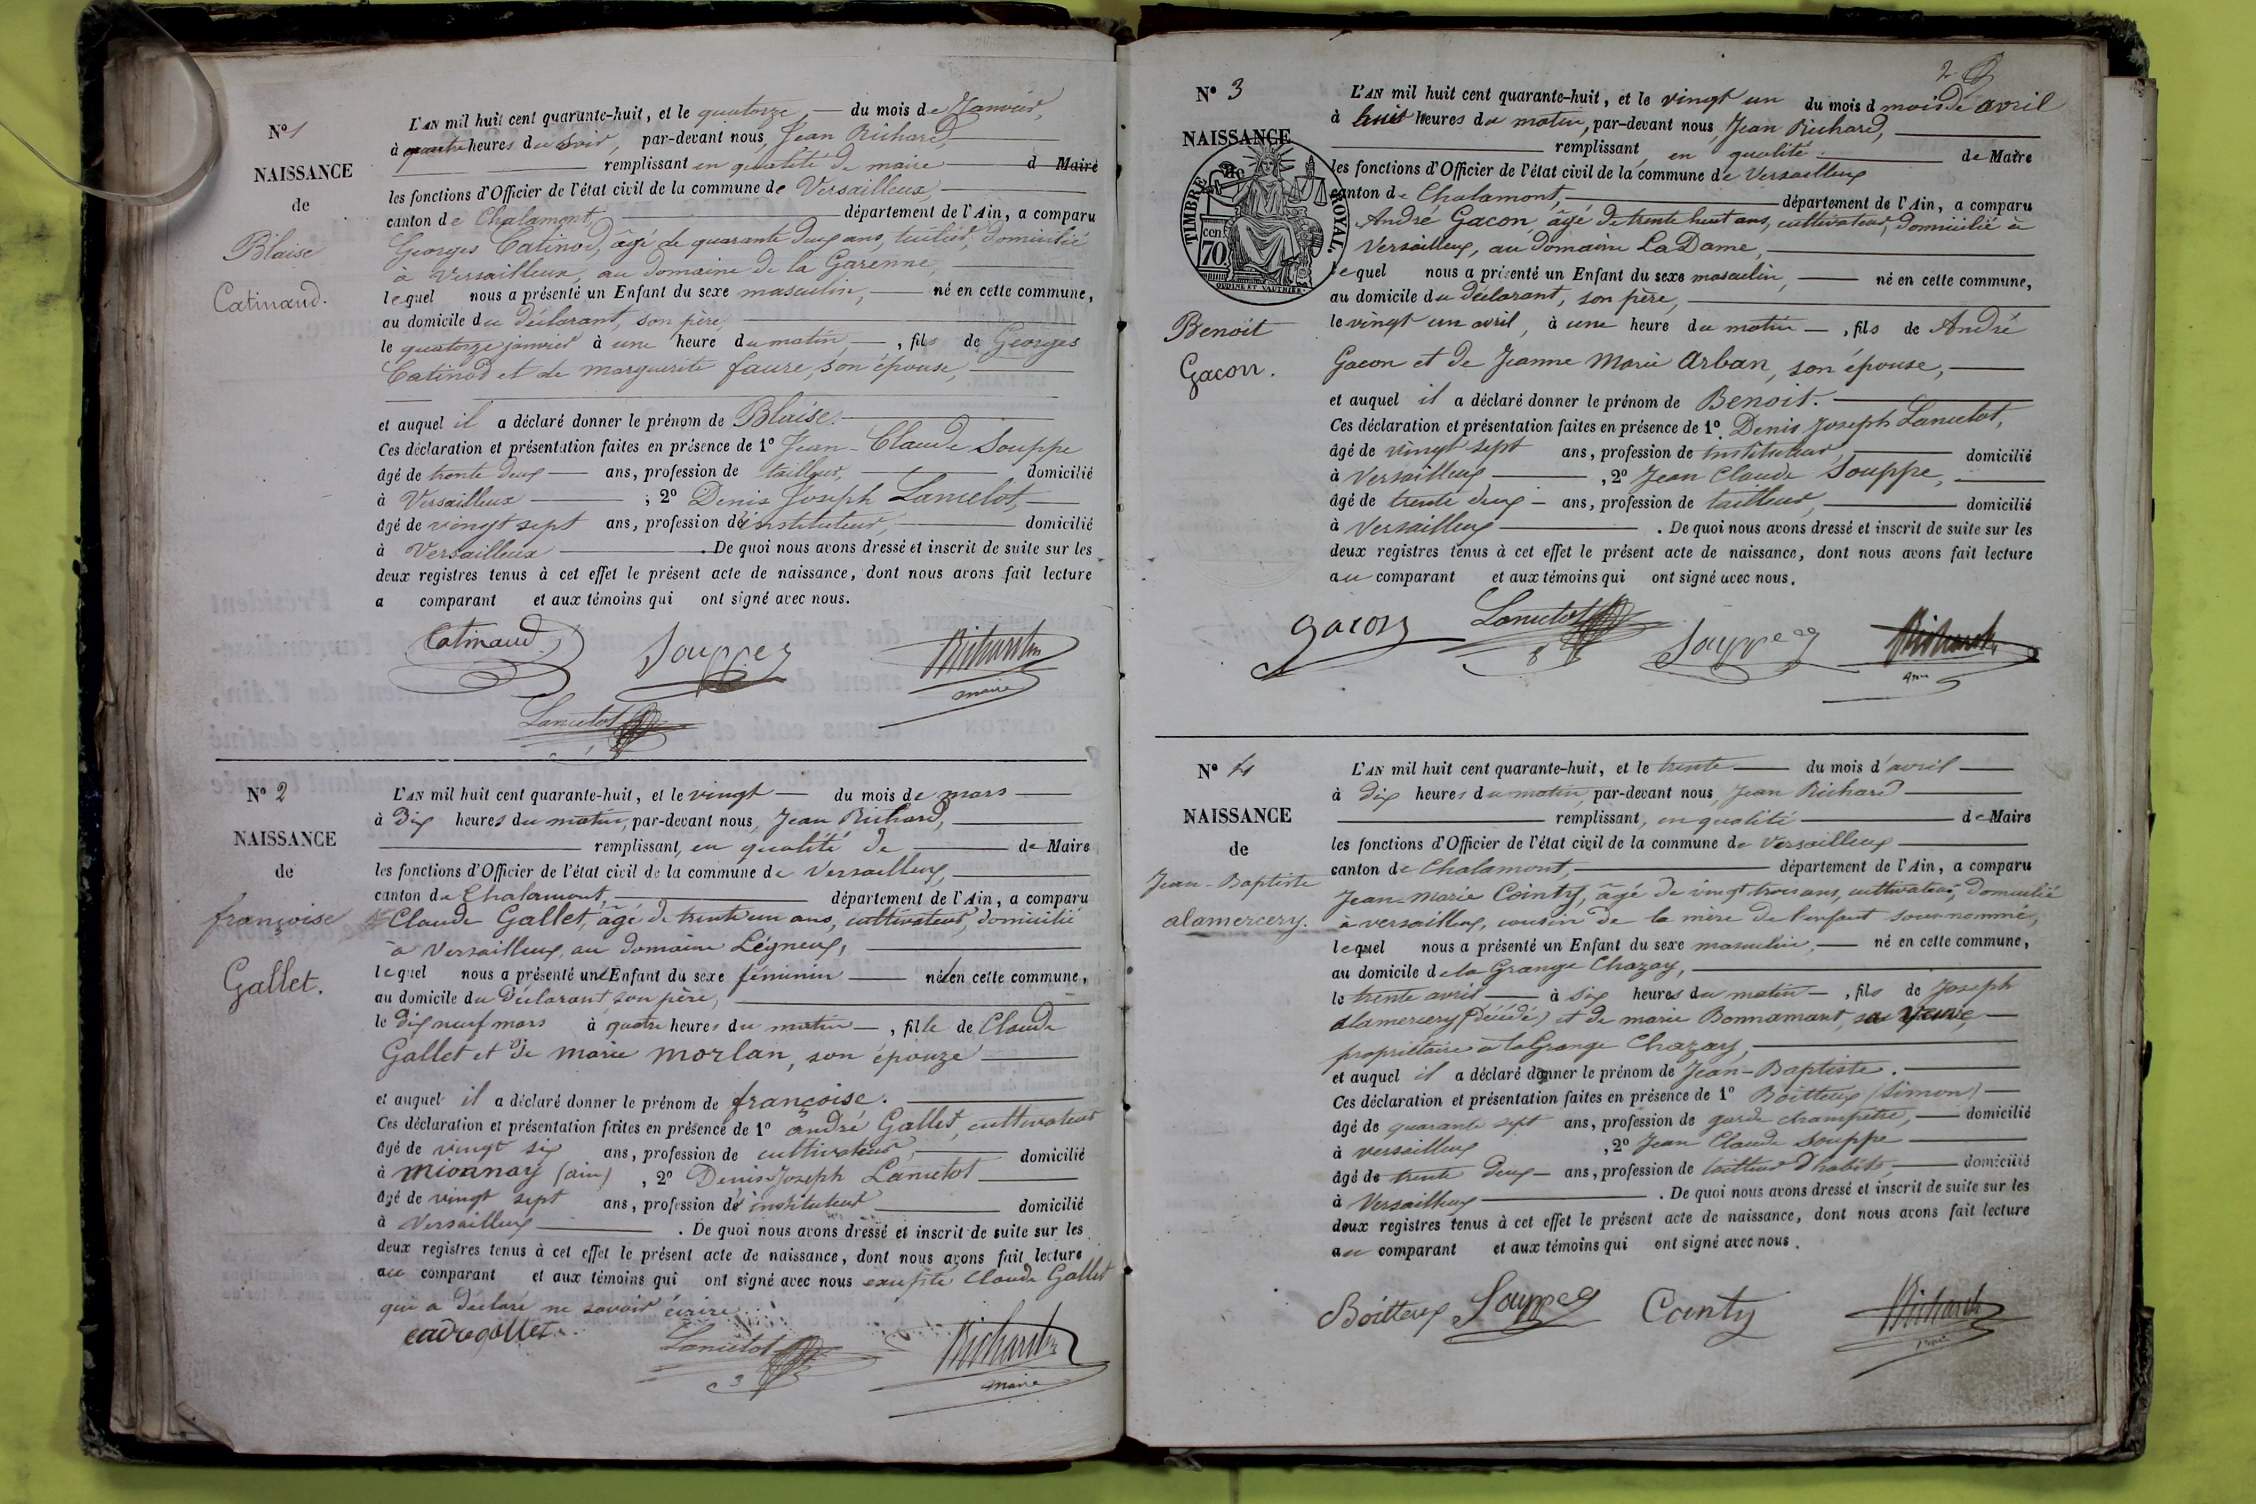 N° 1
NAISSANCE
de
Blaise
Catinaud.
L'AN mil huit cent quarante-huit, et le quatorze du mois de Janvier,
à quatre heures du soir, par-devant nous, Jean Richard,
remplissant en qualité de maire d Maire
les fonctions d'Officier de l'état civil de la commune de Versailleux,
canton de Chalamont, département de l'Ain, a comparu
Georges Catinod, âgé de quarante deux ans, tuilier, domicilié
à Versailleux, au domaine de la Garenne,
lequel nous a présenté un Enfant du sexe masculin, né en cette commune,
au domicile du déclarant, son père,
le quatorze janvier à une heure du matin, fils de Georges
Catinod et de marguerite faure, son épouse,
et auquel il a déclaré donner le prénom de Blaise.
Ces déclaration et présentation faites en présence de 1° Jean-Claude Souppe
âgé de trente deux ans, profession de tailleur, domicilié
à Versailleux ; 2° Denis Joseph Lancelot,
âgé de vingt sept ans, profession d'instituteur, domicilié
à Versailleux. De quoi nous avons dressé et inscrit de suite sur les
deux registres tenus à cet effet le présent acte de naissance, dont nous avons fait lecture
a comparant et aux témoins qui ont signé avec nous.
Catinaud. Souppe Richard
maire
Lancelot
N° 2
NAISSANCE
de
françoise
Gallet.
L'AN mil huit cent quarante-huit, et le vingt du mois de mars
à Dix heures du matin, par-devant nous, Jean Richard,
remplissant, en qualité de de Maire
les fonctions d'Officier de l'état civil de la commune de Versailleux,
canton de Chalamont, département de l'Ain, a comparu
Claude Gallet, âgé de trente un ans, cultivateur, domicilié
à Versailleux, au domaine Légneux,
lequel nous a présenté une Enfant du sexe féminin née en cette commune,
au domicile du Déclarant son père,
le dix neuf mars à quatre heures du matin, fille de Claude
Gallet et de marie morlan, son épouze
et auquel il a déclaré donner le prénom de françoise.
Ces déclaration et présentation faites en présence de 1° andré Gallet, cultivateur
âgé de vingt six ans, profession de cultivateur, domicilié
à mionnay (ain), 2° Denis Joseph Lancelot
âgé de vingt sept ans, profession d'instituteur domicilié
à Versailleux. De quoi nous avons dressé et inscrit de suite sur les
deux registres tenus à cet effet le présent acte de naissance, dont nous avons fait lecture
au comparant et aux témoins qui ont signé avec nous excepté Claude Gallet
qui a déclaré ne savoir écrire
Lancelot Richard
maire
2
N° 3
NAISSANCE
de
TIMBRE ROYAL.
70 cen
Benoît
Gacon.
L'AN mil huit cent quarante-huit, et le vingt un du mois d mois de avril
à huit heures du matin, par-devant nous Jean Richard,
remplissant, en qualité de Maire
les fonctions d'Officier de l'état civil de la commune de Versailleux
canton de Chalamont, département de l'Ain, a comparu
André Gacon, âgé de trente huit ans, cultivateur, domicilié à
Versailleux, au domaine La Dame,
lequel nous a présenté un Enfant du sexe masculin, né en cette commune,
au domicile du déclarant, son père,
le vingt un avril, à une heure du matin, fils de André
Gacon et de Jeanne Marie Arban, son épouse,
et auquel il a déclaré donner le prénom de Benoit.
Ces déclaration et présentation faites en présence de 1° Denis Joseph Lancelot,
âgé de vingt sept ans, profession de instituteur, domicilié
à Versailleux, 2° Jean Claude Souppe,
âgé de trente deux ans, profession de tailleur, domicilié
à Versailleux. De quoi nous avons dressé et inscrit de suite sur les
deux registres tenus à cet effet le présent acte de naissance, dont nous avons fait lecture
au comparant et aux témoins qui ont signé avec nous.
gacon Lancelot Souppe Richard
N° 4
NAISSANCE
de
Jean-Baptiste
alamercery.
L'AN mil huit cent quarante-huit, et le trente du mois d'avril
à dix heures du matin, par-devant nous, Jean Richard
remplissant, en qualité de Maire
les fonctions d'Officier de l'état civil de la commune de Versailleux
canton de Chalamont, département de l'Ain, a comparu
Jean-Marie Cointy, âgé de vingt trois ans, cultivateur, domicilié
à versailleux, cousin de la mère de l'enfant sous-nommé,
lequel nous a présenté un Enfant du sexe masculin, né en cette commune,
au domicile de la Grange Chazay,
le trente avril à six heures du matin, fils de Joseph
alamercery (décédé) et de marie Bonnamant, sa veuve,
propriétaire à la Grange Chazay,
et auquel il a déclaré donner le prénom de Jean-Baptiste.
Ces déclaration et présentation faites en présence de 1° Boitteux (simon)
âgé de quarante sept ans, profession de garde champêtre, domicilié
à versailleux, 2° Jean Claude Souppe
âgé de trente deux ans, profession de tailleur d'habits, domicilié
à Versailleux. De quoi nous avons dressé et inscrit de suite sur les
deux registres tenus à cet effet le présent acte de naissance, dont nous avons fait lecture
au comparant et aux témoins qui ont signé avec nous.
Boitteux Souppe Cointy Richard